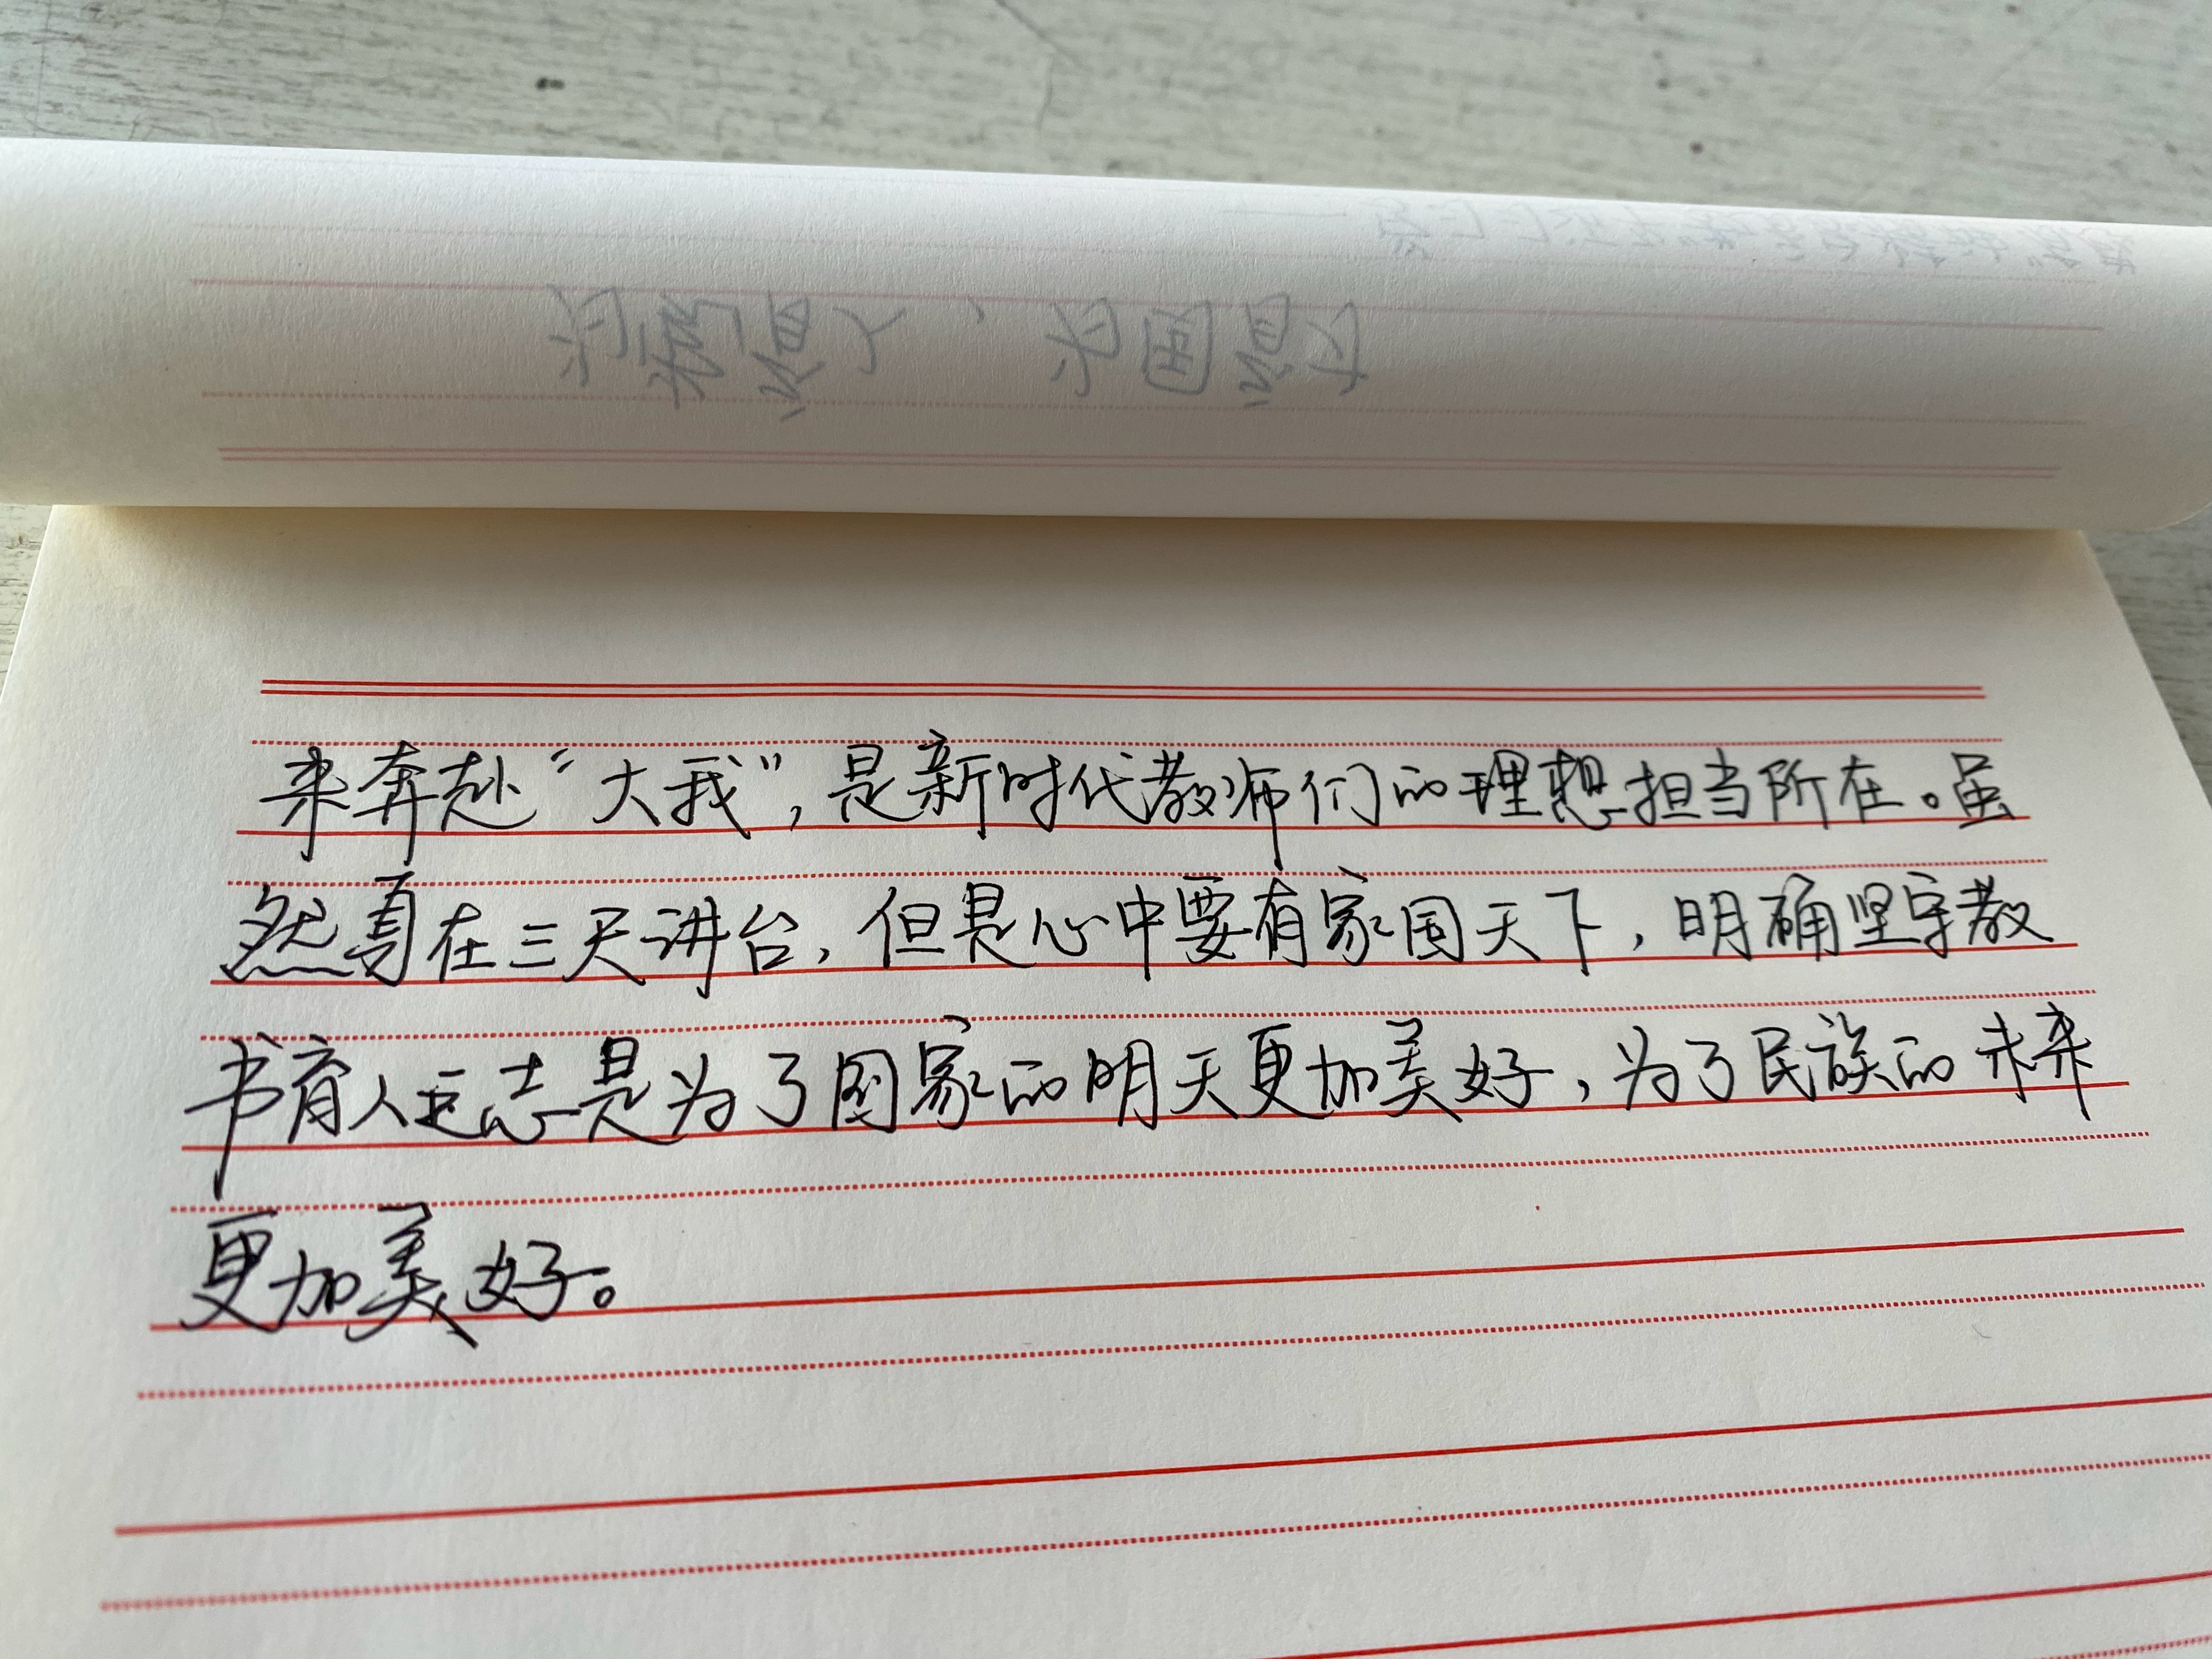 来奔赴“大我”，是新时代教师们的理想担当所在。虽
然身在三天讲台，但是心中要有家国天下，明确坚守教
书育人之志是为了国家的明天更加美好，为了民族的未来
更加美好。